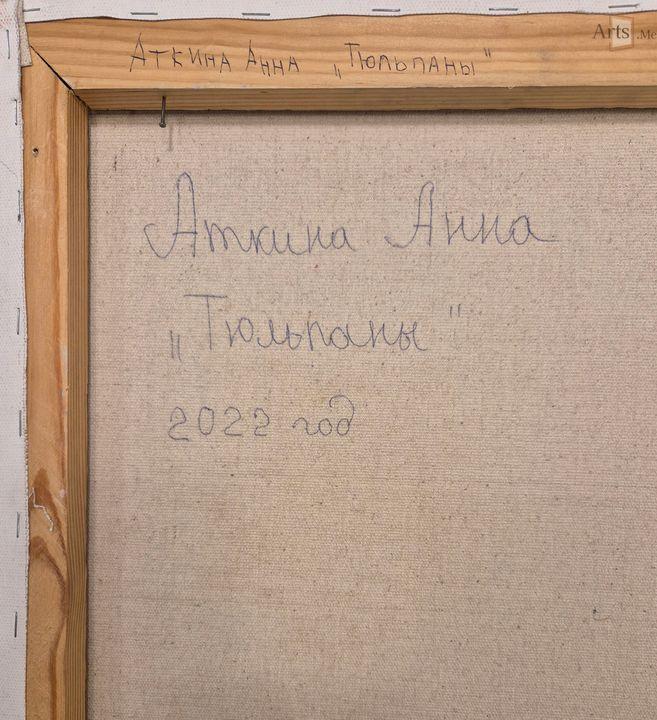 Arts .Me
Аткина Анна „Тюльпаны"
Аткина Анна
„Тюльпаны"
2022 год